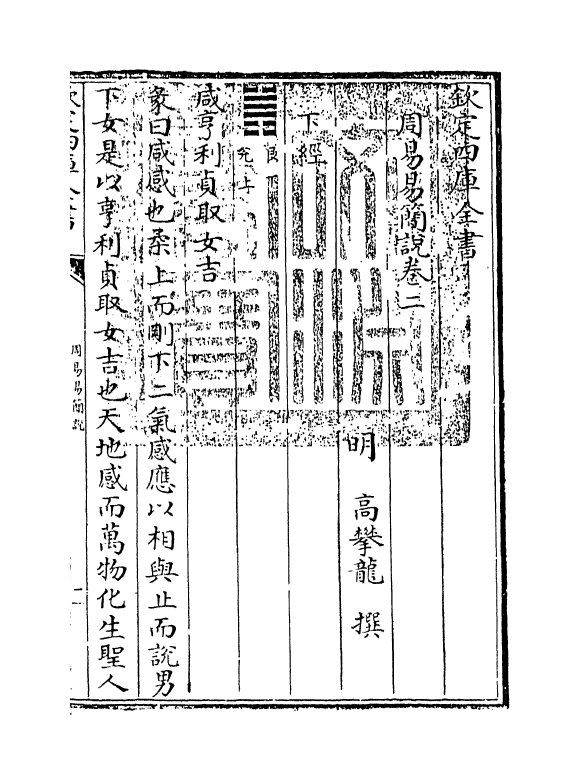 欽定四庫全書
周易易簡說卷二
明 高攀龍 撰
下經
艮下
兌上
咸亨利貞取女吉
彖曰咸感也柔上而剛下二氣感應以相與止而說男
下女是以亨利貞取女吉也天地感而萬物化生聖人
欽定四庫全書
周易易簡說